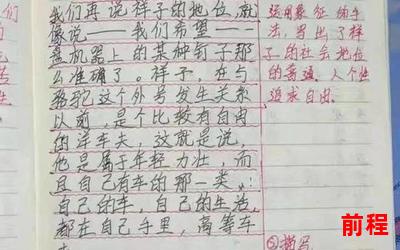 们
我们再说样子的地位,就
像说——我们希望——一
盘机器上的某种钉子那
么准确了。样子,在与
骆驼这个外号发生关系
以前,是个比较有自由
的洋车夫,这就是说,
他是属于年轻力壮,而
且自己有车的那一类:
自己的车,自己的生活,
都在自己手里,高等车
运用象征的手
法,写出了样
子的社会地位
的普通,人个性
追求自由。
②描写
前程